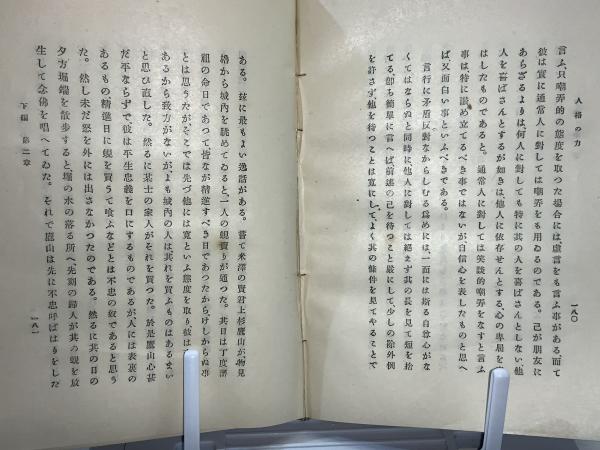 人格の力
一八〇
言ふ、只嘲弄的の態度を取つた場合には、虛言をも言ふ事がある、而て
彼は實に通常人に對しては嘲弄をも用ゐるのである。己が朋友に
あらざるよりは、何人に對しても特に其の人を喜ばさんとしない、他
人を喜ばさんとするが如きは他人に依存せんとする、心の卑屈を
はしたものであると。通常人に對しては笑談的嘲弄をなすと言ふ
事は、特に譽め立てるべき事ではないが、自信心を表したものと思へ
ば、又面白い事といふべきである。
言行に矛盾反對なからしむる爲めには、一面には斯る自尊心がな
くてはならぬと同時に、他人に對しては絕まず其の長を見て短を捨
てる、卽ち簡單に言へば前述の己を待つこと嚴にして、少しの除外例
を許さず、他を待つことは寬にして、よく其の條件を見てやることで
ある。玆に最もよい逸話がある。嘗て米澤の賢君上杉鷹山が物見
櫓から城內を眺めてゐると、一人の蜆賣りが通つた。其日は丁度諸
祖の命日であつて皆なが精進すべき日であつたから、けしからぬ事
とは思うたが、そこでは先づ他には寬といふ態度を取り、彼は
あるから致方がないが、よも城內の人は其れを買ふものはあるまい
と思ひ直した。然るに某士の家人がそれを買つた。於是鷹山心甚
だ平ならずで、彼は平生忠義を口にするものであるが、人には表裏の
あるもの精進日に蜆を買うて喰ふなどとは不忠の奴であると思う
た。然し未だ怒を外には出さなかつたのである。然るに其の日の
夕方堀端を散步すると堀の水の落る所へ、先刻の婦人が其の蜆を放
生して念佛を唱へてゐた。それで鷹山は先に不忠呼ばはりをした
下編 第二章
一八一